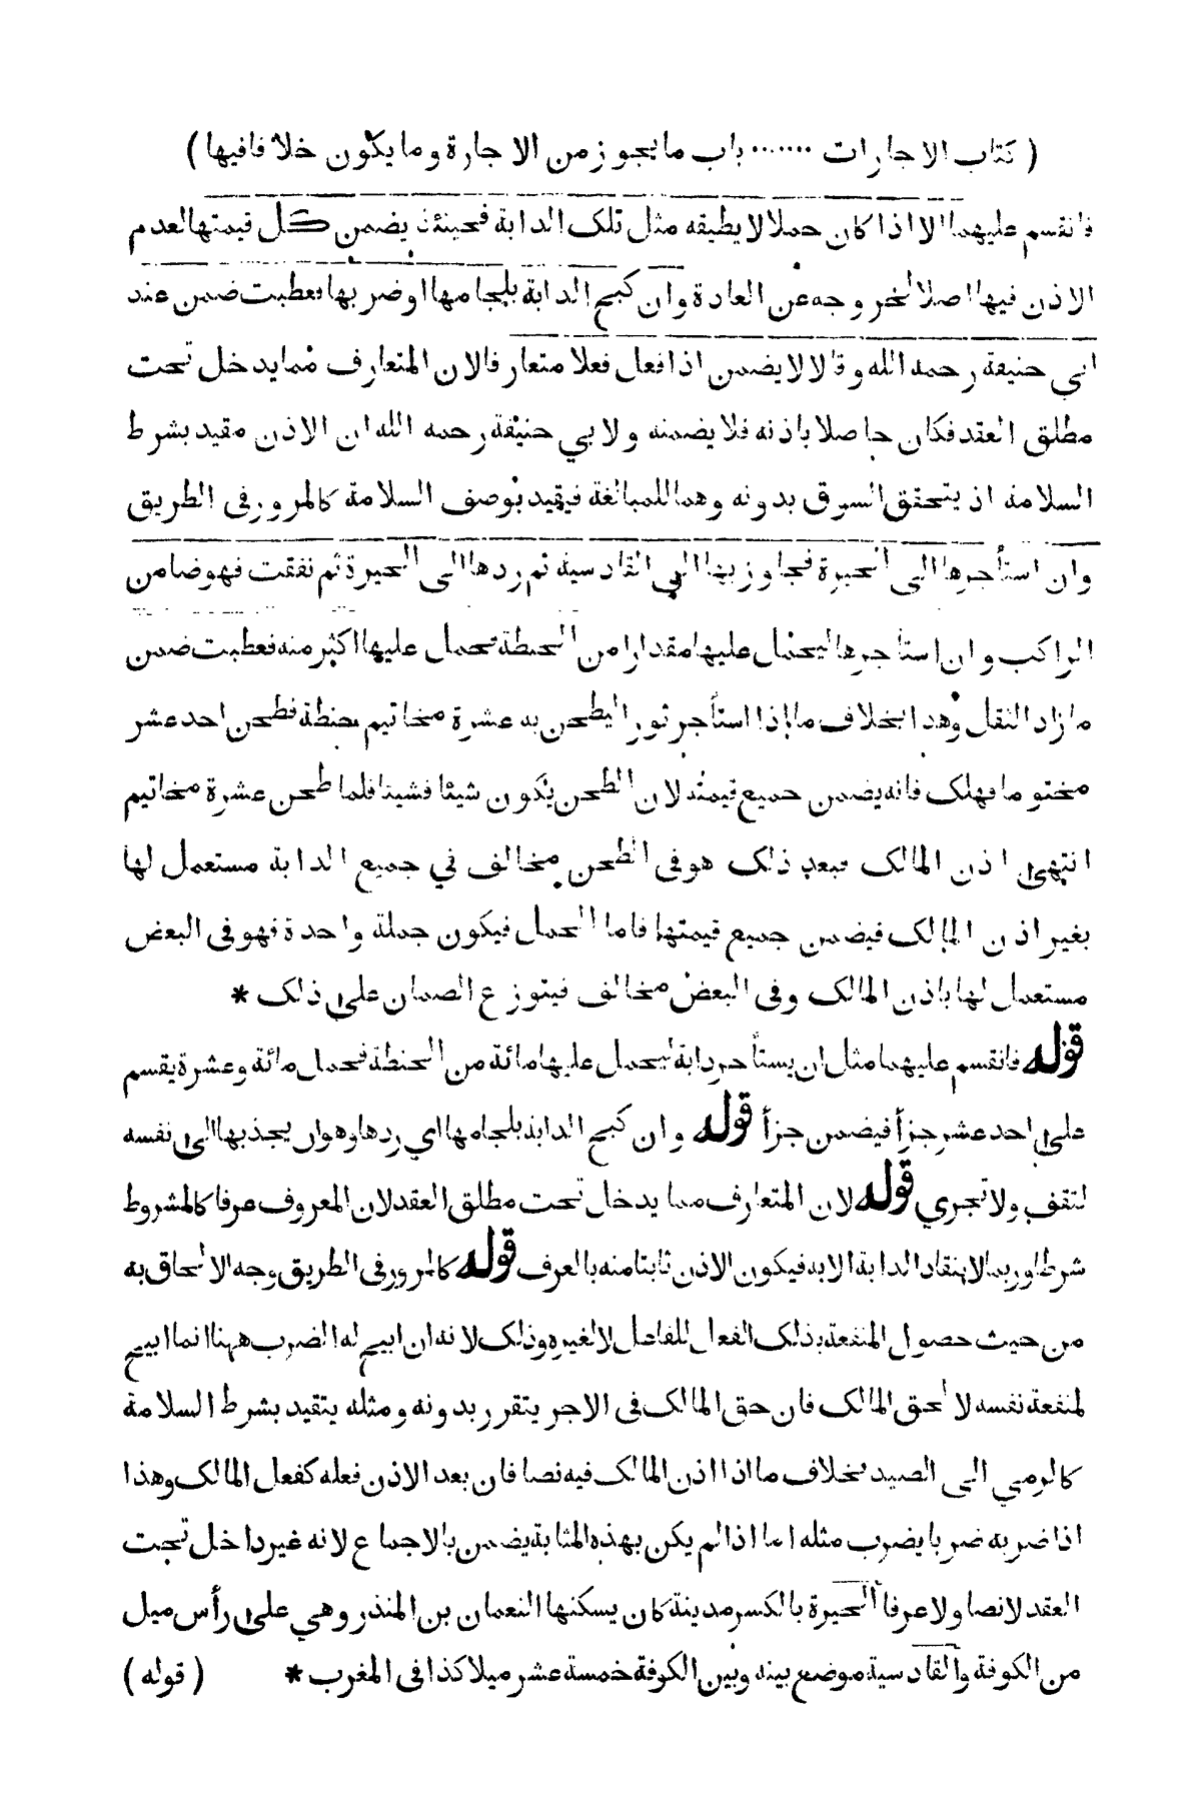 ( كتاب الاجارات ....... باب ما يجوز من الاجارة وما يكون خلافا فيها )
فانقسم عليهما الا اذا كان حملا لا يطيقه مثل تلك الدابة فحينئذ يضمن كل قيمتها لعدم
الاذن فيها اصلا لخروجه عن العادة وان كبح الدابة بلجامها او ضربها فعطبت ضمن عند
ابي حنيفة رحمه الله وقالا لا يضمن اذا فعل فعلا متعارفا لان المتعارف مما يدخل تحت
مطلق العقد فكان حاصلا باذنه فلا يضمنه ولابي حنيفة رحمه الله ان الاذن مقيد بشرط
السلامة اذ يتحقق السوق بدونه وهما للمبالغة فيقيد بوصف السلامة كالمرور في الطريق
وان استأجرها الى الحيرة فجاوز بها الى القادسية ثم ردها الى الحيرة ثم نفقت فهو ضامن
الراكب وان استأجرها ليحمل عليها مقدارا من الحنطة فحمل عليها اكثر منه فعطبت ضمن
ما زاد الثقل وهذا بخلاف ما اذا استأجر ثورا ليطحن به عشرة مخاتيم حنطة فطحن احد عشر
مختوما فهلك فانه يضمن جميع قيمته لان الطحن يكون شيئا فشيئا فلما طحن عشرة مخاتيم
انتهى اذن المالك فبعد ذلك هو في الطحن مخالف في جميع الدابة مستعمل لها
بغير اذن المالك فيضمن جميع قيمتها فاما الحمل فيكون جملة واحدة فهو في البعض
مستعمل لها باذن المالك وفي البعض مخالف فيتوزع الضمان على ذلك *
قوله فانقسم عليهما مثل ان يستأجر دابة ليحمل عليها مائة من الحنطة فحمل مائة وعشرة يقسم
على احد عشر جزأ فيضمن جزأ قوله وان كبح الدابة بلجامها اي ردها وهو ان يجذبها الى نفسه
لتقف ولا تجري قوله لان المتعارف مما يدخل تحت مطلق العقد لان المعروف عرفا كالمشروط
شرطا وربما لا ينقاد الدابة الا به فيكون الاذن ثابتا منه بالعرف قوله كالمرور في الطريق وجه الالحاق به
من حيث حصول المنفعة بذلك الفعل للفاعل لا لغيره وذلك لانه ان ابيح له الضرب ههنا انما ابيح
لمنفعة نفسه لا لحق المالك فان حق المالك في الاجر يتقرر بدونه ومثله يتقيد بشرط السلامة
كالرمي الى الصيد بخلاف ما اذا اذن المالك فيه نصا فان بعد الاذن فعله كفعل المالك وهذا
اذا ضربه ضربا يضرب مثله اما اذا لم يكن بهذه المثابة يضمن بالاجماع لانه غير داخل تحت
العقد لا نصا ولا عرفا الحيرة بالكسر مدينة كان يسكنها النعمان بن المنذر وهي على رأس ميل
من الكوفة والقادسية موضع بينه وبين الكوفة خمسة عشر ميلا كذا في المغرب * ( قوله )